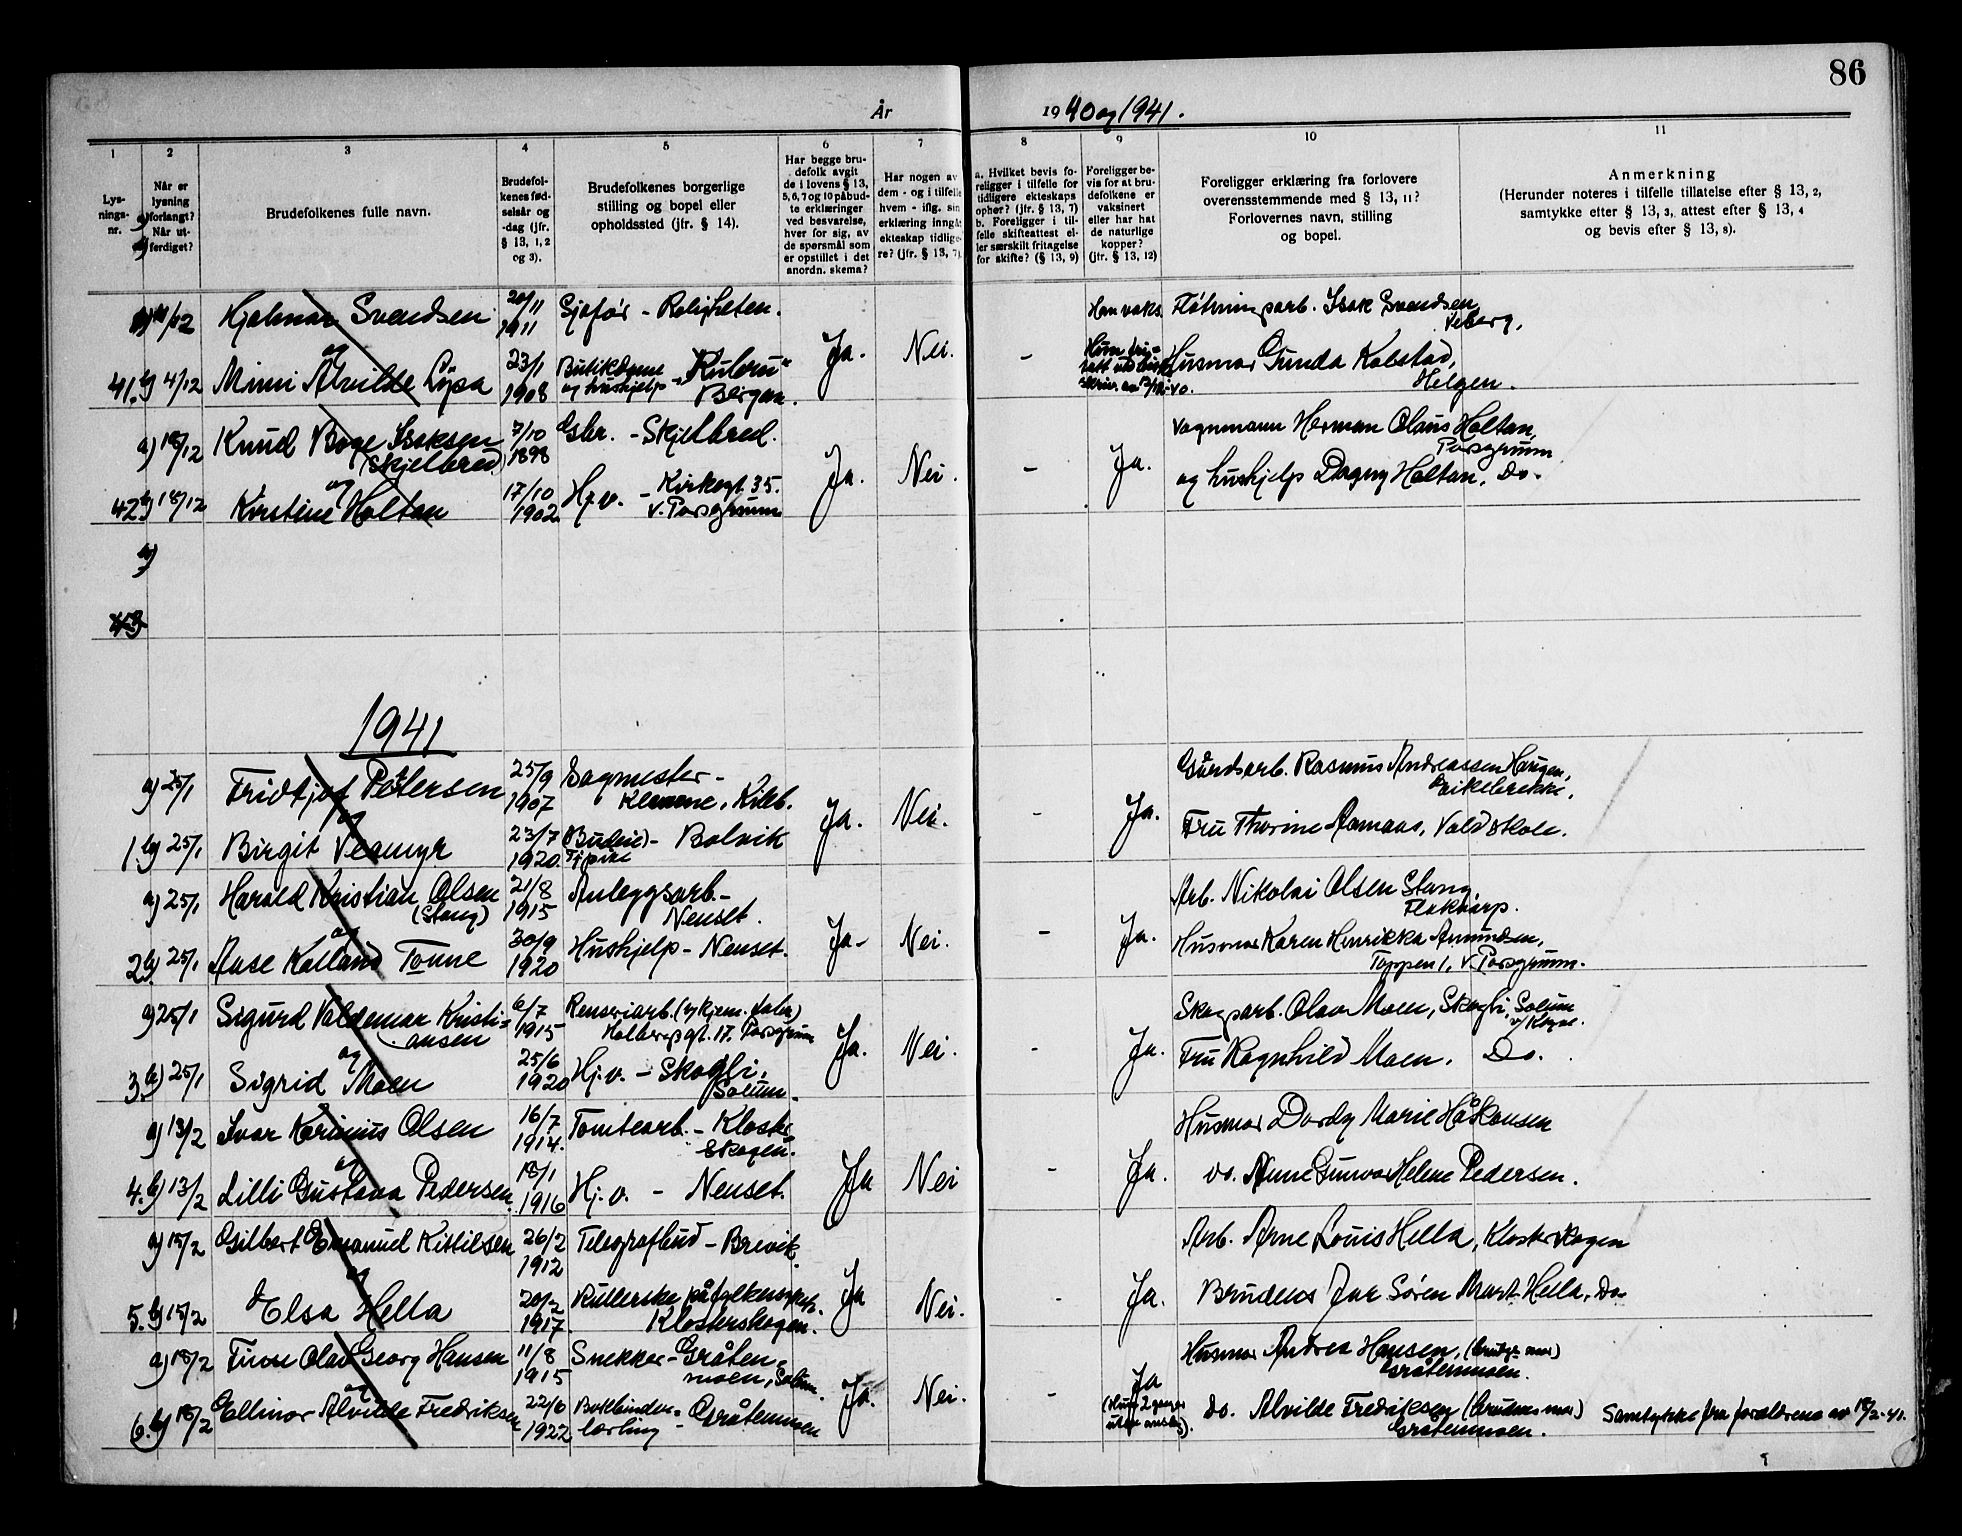 86
År 1940 og 1941.
1 2 3 4 5 6 7 8 9 10 11
Lys-
nings-
nr.
Når er
lysning
forlangt?
Når ut-
ferdiget?
a)
b)
Brudefolkenes fulle navn.
Brudefol-
kenes fød-
selsår og
-dag (jfr.
§ 13, 1, 2
og 3).
Brudefolkenes borgerlige
stilling og bopel eller
opholdssted (jfr. § 14).
Har begge bru-
defolk avgit
de i lovens § 13,
5, 6, 7 og 10 påbud-
te erklæringer
ved besvarelse,
hver for sig, av
de spørsmål som
er opstillet i det
anordn. skema?
Har nogen av
dem - og i tilfelle
hvem - iflg. sin
erklæring inngåt
ekteskap tidlige-
re? (jfr. § 13, 7)
a. Hvilket bevis fo-
religger i tilfelle for
tidligere ekteskaps
ophør? (jfr. § 13, 7)
b. Foreligger i til-
felle skifteattest el-
ler særskilt fritagelse
for skifte? (§ 13, 9)
Foreligger be-
vis for at bru-
defolkene er
vaksinert
eller har hat
de naturlige
kopper?
(jfr. § 13, 12)
Foreligger erklæring fra forlovere
overensstemmende med § 13, 11?
Forlovernes navn, stilling
og bopel.
Anmerkning
(Herunder noteres i tilfelle tillatelse efter § 13, 2,
samtykke efter § 13, 3, attest efter § 13, 4
og bevis efter § 13, 8).
Hjalmar Svendsen 20/11 1911 Sjafør - Roligheten. Han vaks. Fløtningsarb. Isak Svendsen
og Ja. Nei. -
41. b) 4/12 Mimi Alvilde 23/1 1908 Butikdame
og hushjelp - Bergan. Husmor Gunda Kolstad,
Helgen.
a) 18/12 Knud Boge Isaksen
(Skjelbred) 7/10 1898 Gbr. - Skjelbred. Vognmann Herman Olaus Holtan,
Porsgrunn
og Ja. Nei. - Ja.
42 b) 18/12 Kirstine Holtan 17/10 1902 Hj.v. - Kirkegt. 35.
V. Porsgrunn og hushjelp Dagny Holtan, Do.
a)
43
1941
a) 25/1 Fridtjof Pettersen 25/9 1907 Sagmester -
Kileb. Gårdsarb. Rasmus Andreassen Haugen,
Eikebrekke.
og Ja. Nei. - Ja.
1. b) 25/1 Birgit Veamyr 23/7 1920 (Budeie) - Bolvik Fru Thorine Aamaas, Vold skole.
a) 25/1 Harald Kristian Olsen
(Stang) 21/8 1915 Anleggsarb. -
Nenset. Arb. Nikolai Olsen Stang,
Flakvarp.
og Ja - Nei. - Ja.
2. b) 25/1 Aase Kolland Tonne 30/9 1920 Hushjelp - Nenset. Husmor Karen Henrikka Amundsen,
Toppen 1, V. Porsgrunn.
a) 25/1 Sigurd Valdemar Kristi-
ansen 6/7 1915 Renseriarb.
Holbergsgt. 17, Porsgrunn Skogsarb. Olav Moen, Skogli, Solum
og Ja. Nei. - Ja.
3. b) 25/1 Sigrid Moen 25/6 1920 Hj.v. - Skogli,
Solum. Fru Ragnhild Moen. Do.
a) 13/2 Ivar Karinius Olsen 16/7 1914. Tomtearb. - Kloster-
skogen. Husmor Dordy Marie Håkonsen
og Ja Nei - Ja.
4. b) 13/2 Lilli Gustava Pedersen 18/1 1916 Hj.v. - Nenset. Do. Anne Gunvor Helene Pedersen.
a) 15/2 Gilbert Emanuel Kittilsen 26/2 1912 Telegrafbud - Brevik. Arb. Arne Louis Hella, Klosterskogen
og Ja Nei. - Ja.
5. b) 15/2 Elsa Hella 20/2 1917. Rullerske på
Klosterskogen. Brudens far Søren Hella, Do
a) 18/2 Olav Georg Hansen 11/8 1915 Snekker - Gråten-
moen, Solum. Husmor Andrea Hansen, (brudg. mor)
Gråtenmoen.
og Ja. Nei. - Ja
(Hun 2 ganger
uten anslag).
6. b) 18/2 Ellinor Alvilde Fredriksen 22/6 1922 Bokbinder-
lærling - Gråtenmoen Do. Alvilde Fredriksen (brudens mor)
Gråtenmoen. Samtykke fra foreldrene av 18/2-41.